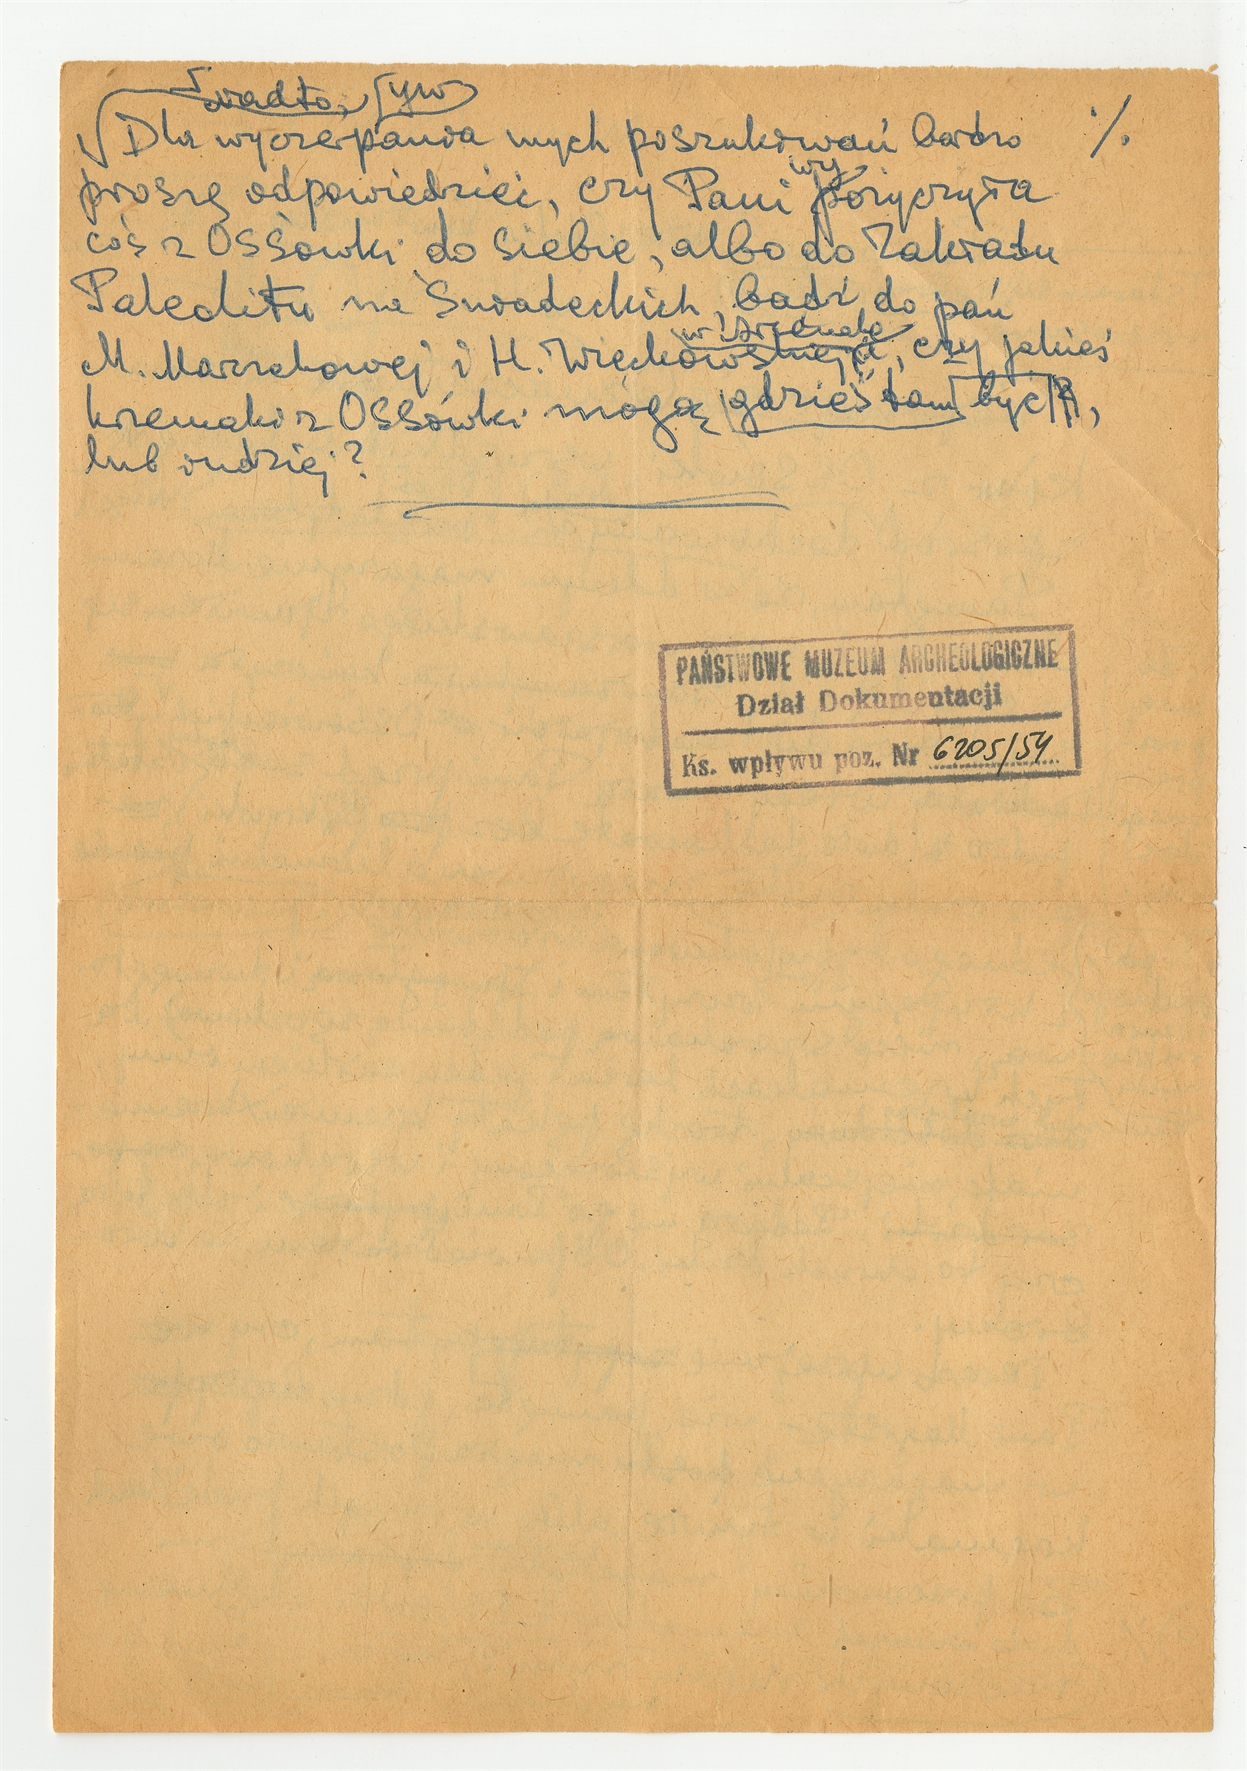 Dla wyczerpania mych poszukiwań bardzo ./.
proszę odpowiedzieć, czy Pani wypożyczyła
coś z Ossówki do siebie, albo do Zakładu
Paleolitu na Śniadeckich, bądź do pań
w Arsenale
M. Marzekowej i H. Więckowskiej, czy jakieś
krzemaki z Ossówki mogą gdzieś tam być,
lub indziej?
PAŃSTWOWE MUZEUM ARCHEOLOGICZNE
Dział Dokumentacji
Ks. wpływu poz. Nr 6205/54